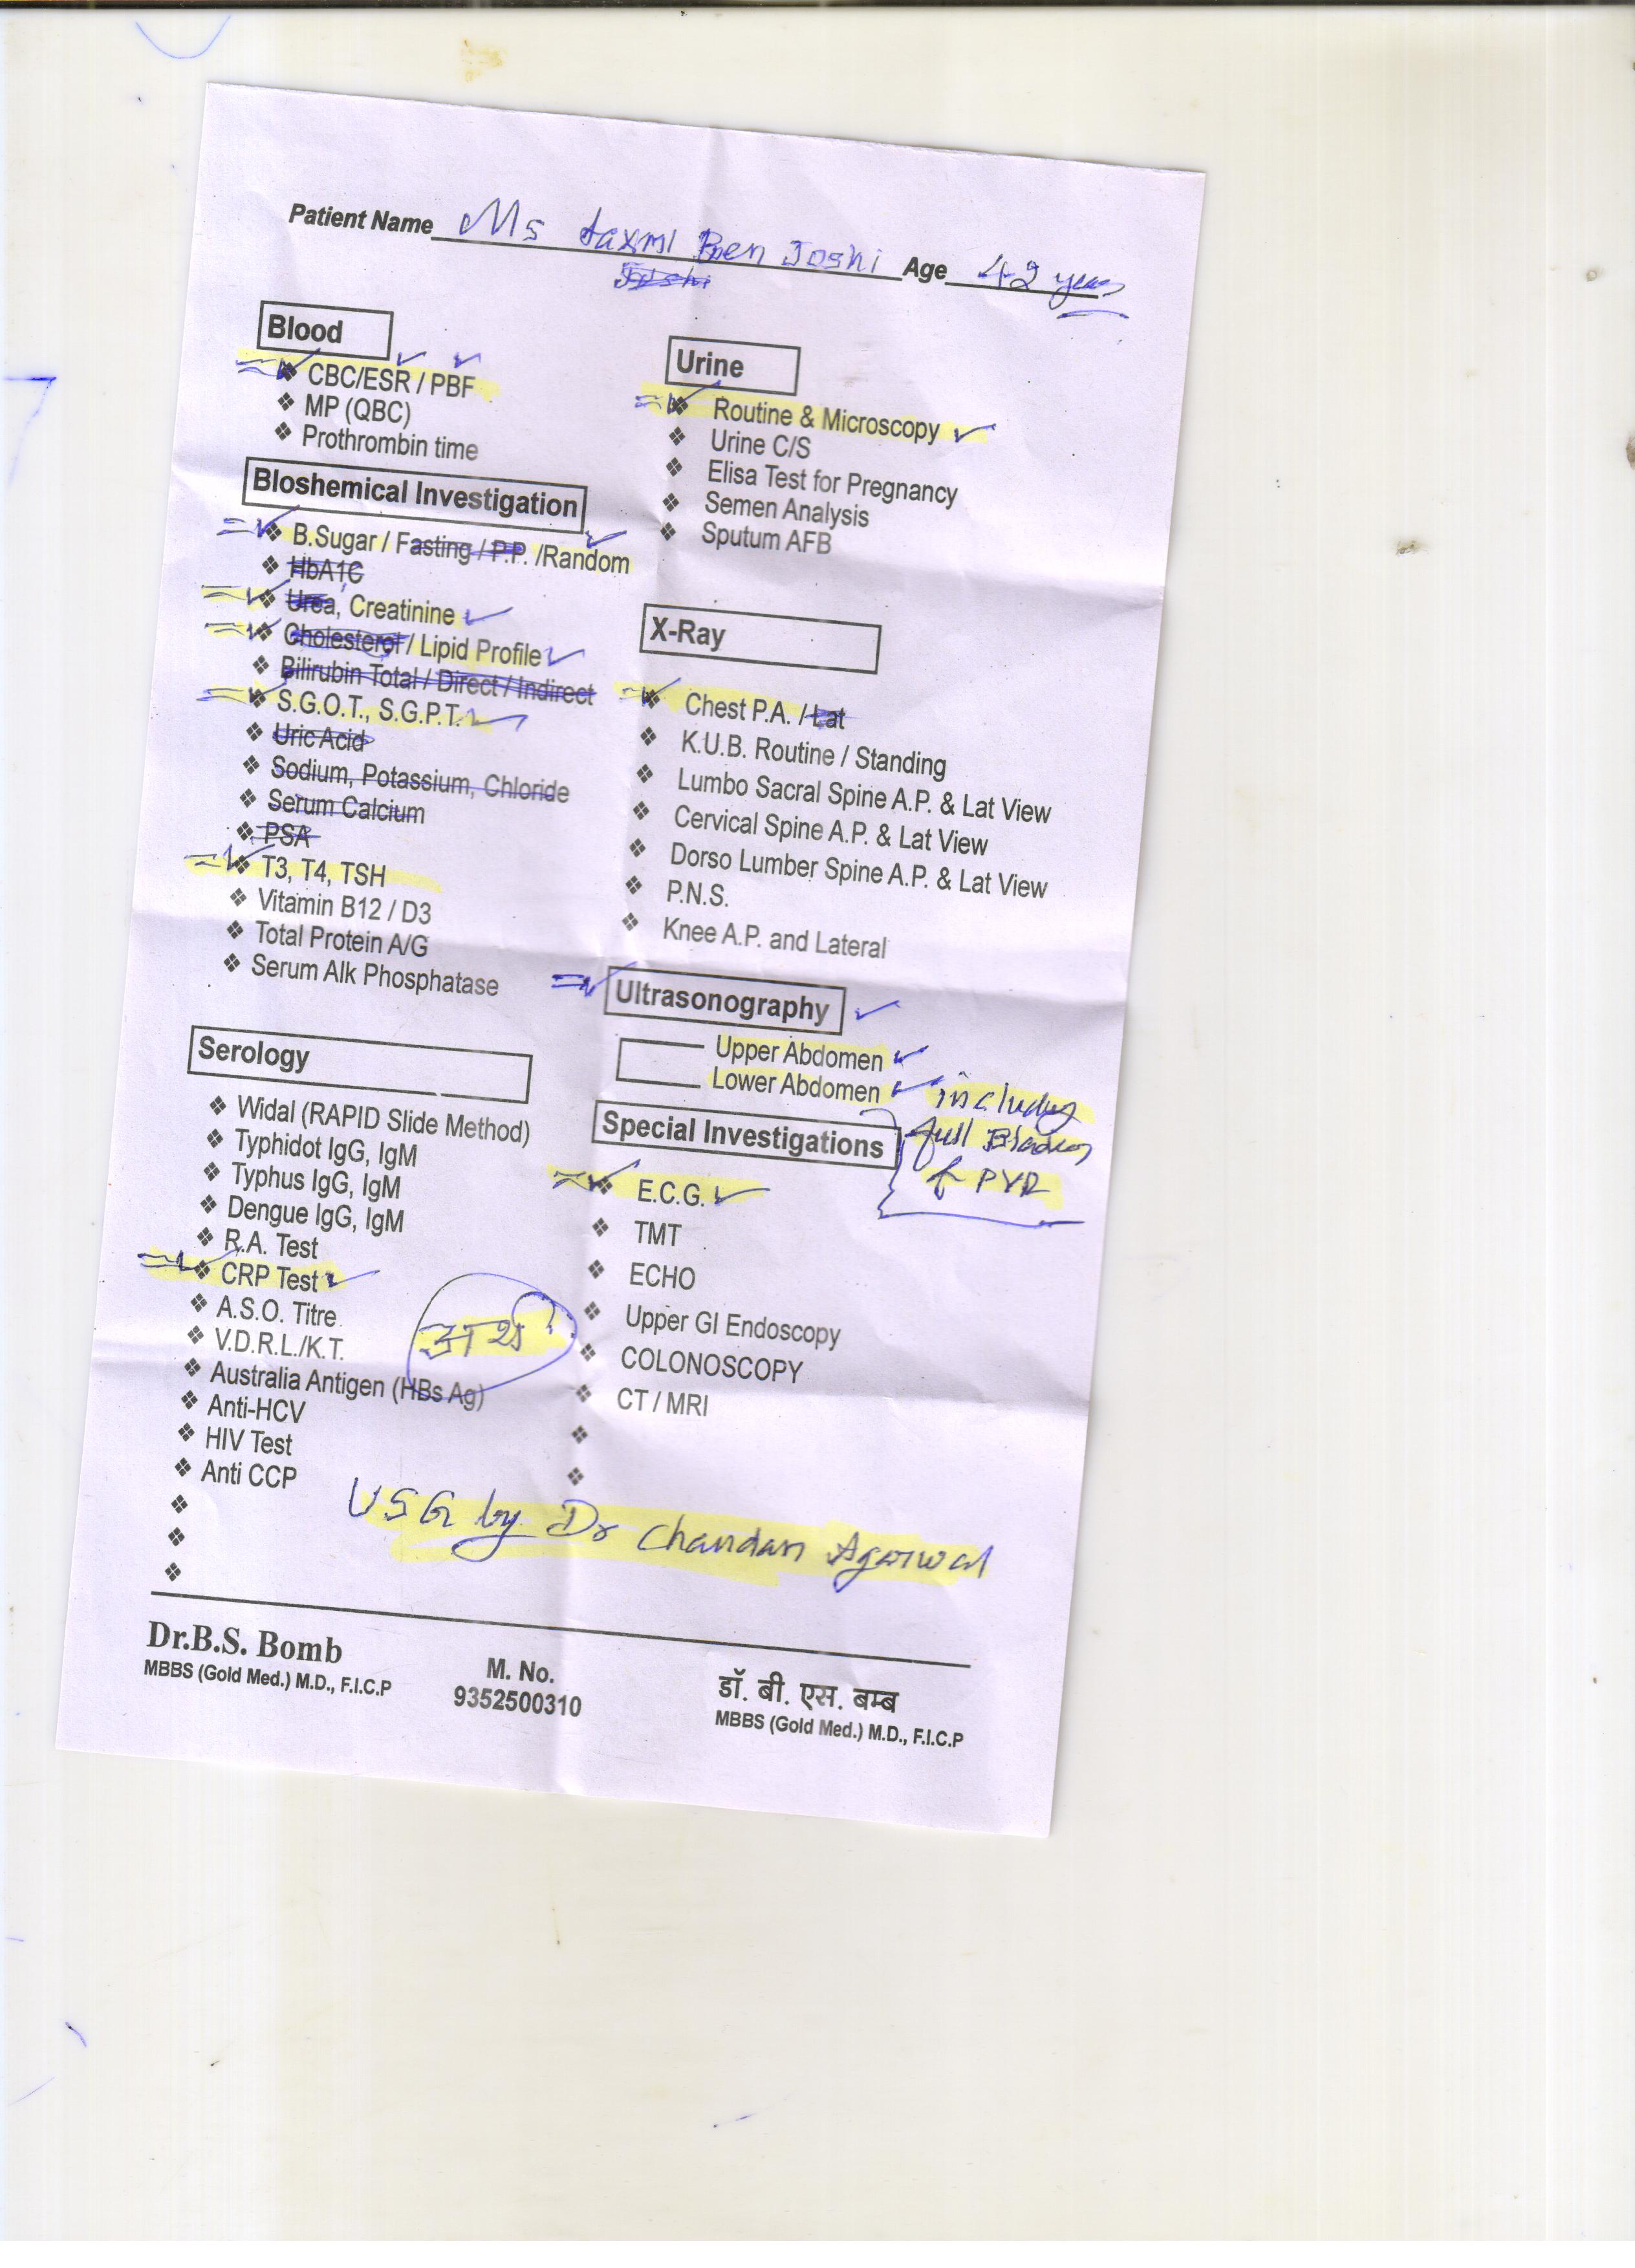 Patient Name Ms Laxmi Ben Joshi Age 42 years
Joshi
Blood
CBC/ESR / PBF
MP (QBC)
Prothrombin time
Bloshemical Investigation
B.Sugar / Fasting / P.P. /Random
HbA1C
Urea, Creatinine
Cholesterol / Lipid Profile
Bilirubin Total / Direct / Indirect
S.G.O.T., S.G.P.T.
Uric Acid
Sodium, Potassium, Chloride
Serum Calcium
PSA
T3, T4, TSH
Vitamin B12 / D3
Total Protein A/G
Serum Alk Phosphatase
Serology
Widal (RAPID Slide Method)
Typhidot IgG, IgM
Typhus IgG, IgM
Dengue IgG, IgM
R.A. Test
CRP Test
A.S.O. Titre
V.D.R.L./K.T.
Australia Antigen (HBs Ag)
Anti-HCV
HIV Test
Anti CCP
Urine
Routine & Microscopy
Urine C/S
Elisa Test for Pregnancy
Semen Analysis
Sputum AFB
X-Ray
Chest P.A. / Lat
K.U.B. Routine / Standing
Lumbo Sacral Spine A.P. & Lat View
Cervical Spine A.P. & Lat View
Dorso Lumber Spine A.P. & Lat View
P.N.S.
Knee A.P. and Lateral
Ultrasonography
Upper Abdomen
Lower Abdomen
including
full Bladder
& PVR
Special Investigations
E.C.G.
TMT
ECHO
Upper GI Endoscopy
COLONOSCOPY
CT / MRI
USG by Dr Chandan Agarwal
Dr.B.S. Bomb
MBBS (Gold Med.) M.D., F.I.C.P
M. No.
9352500310
डॉ. बी. एस. बम्ब
MBBS (Gold Med.) M.D., F.I.C.P